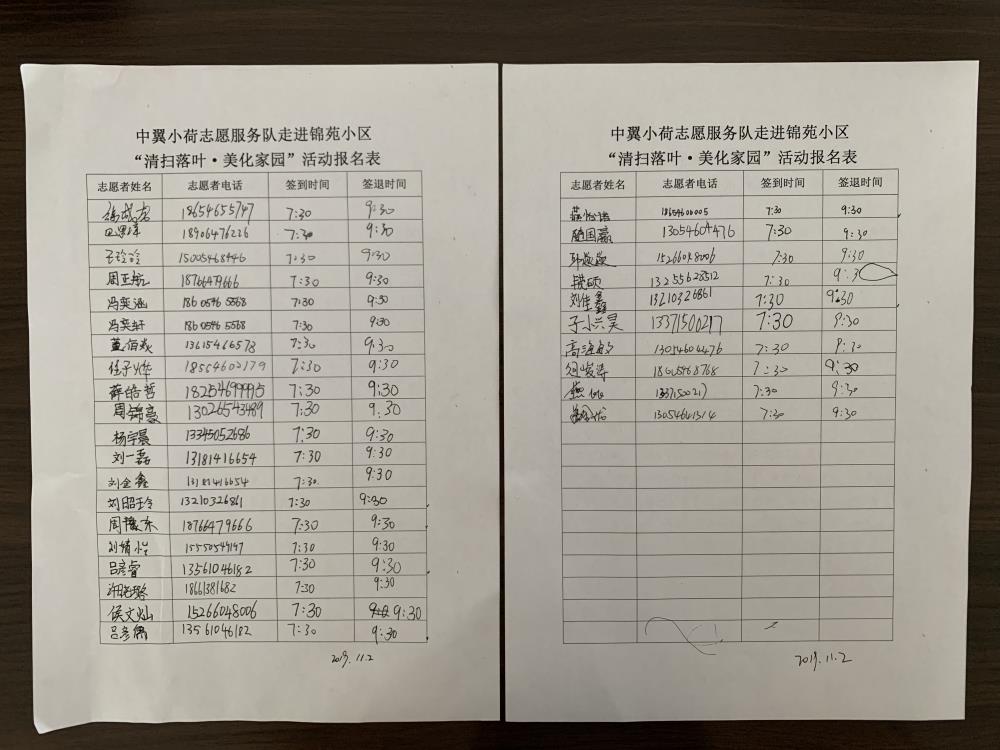 中翼小荷志愿服务队走进锦苑小区
“清扫落叶·美化家园”活动报名表
志愿者姓名 志愿者电话 签到时间 签退时间
18654655747 7:30 9:30
18906476226 7:30 9:30
王玲玲 15005468446 7:30 9:30
周亚航 18766479666 7:30 9:30
冯奕涵 186 0546 5568 7:30 9:30
冯奕轩 186 0546 5568 7:30 9:30
董佰焱 13615466578 7:30 9:30
任子烨 18564602179 7:30 9:30
薛皓哲 18254699995 7:30 9:30
周锦豪 13026543489 7:30 9:30
杨宇晨 13345052686 7:30 9:30
刘一磊 13181416654 7:30 9:30
刘金鑫 13181416654 7:30 9:30
刘昭玲 13210326861 7:30 9:30
周豫东 18766479666 7:30 9:30
刘婧怡 15550549197 7:30 9:30
吕彦睿 13561046182 7:30 9:30
18661381682 7:30 9:30
侯文灿 15266048006 7:30 9:30
吕彦儒 13561046182 7:30 9:30
2019.11.2
中翼小荷志愿服务队走进锦苑小区
“清扫落叶·美化家园”活动报名表
志愿者姓名 志愿者电话 签到时间 签退时间
18654600005 7:30 9:30
随国赢 13054604476 7:30 9:30
15266048006 7:30 9:30
13255628512 7:30 9:30
刘佳鑫 13210326861 7:30 9:30
13371500217 7:30 9:30
高海敏 13054604476 7:30 9:30
18615468768 7:30 9:30
13371500217 7:30 9:30
13054641314 7:30 9:30
2019.11.2